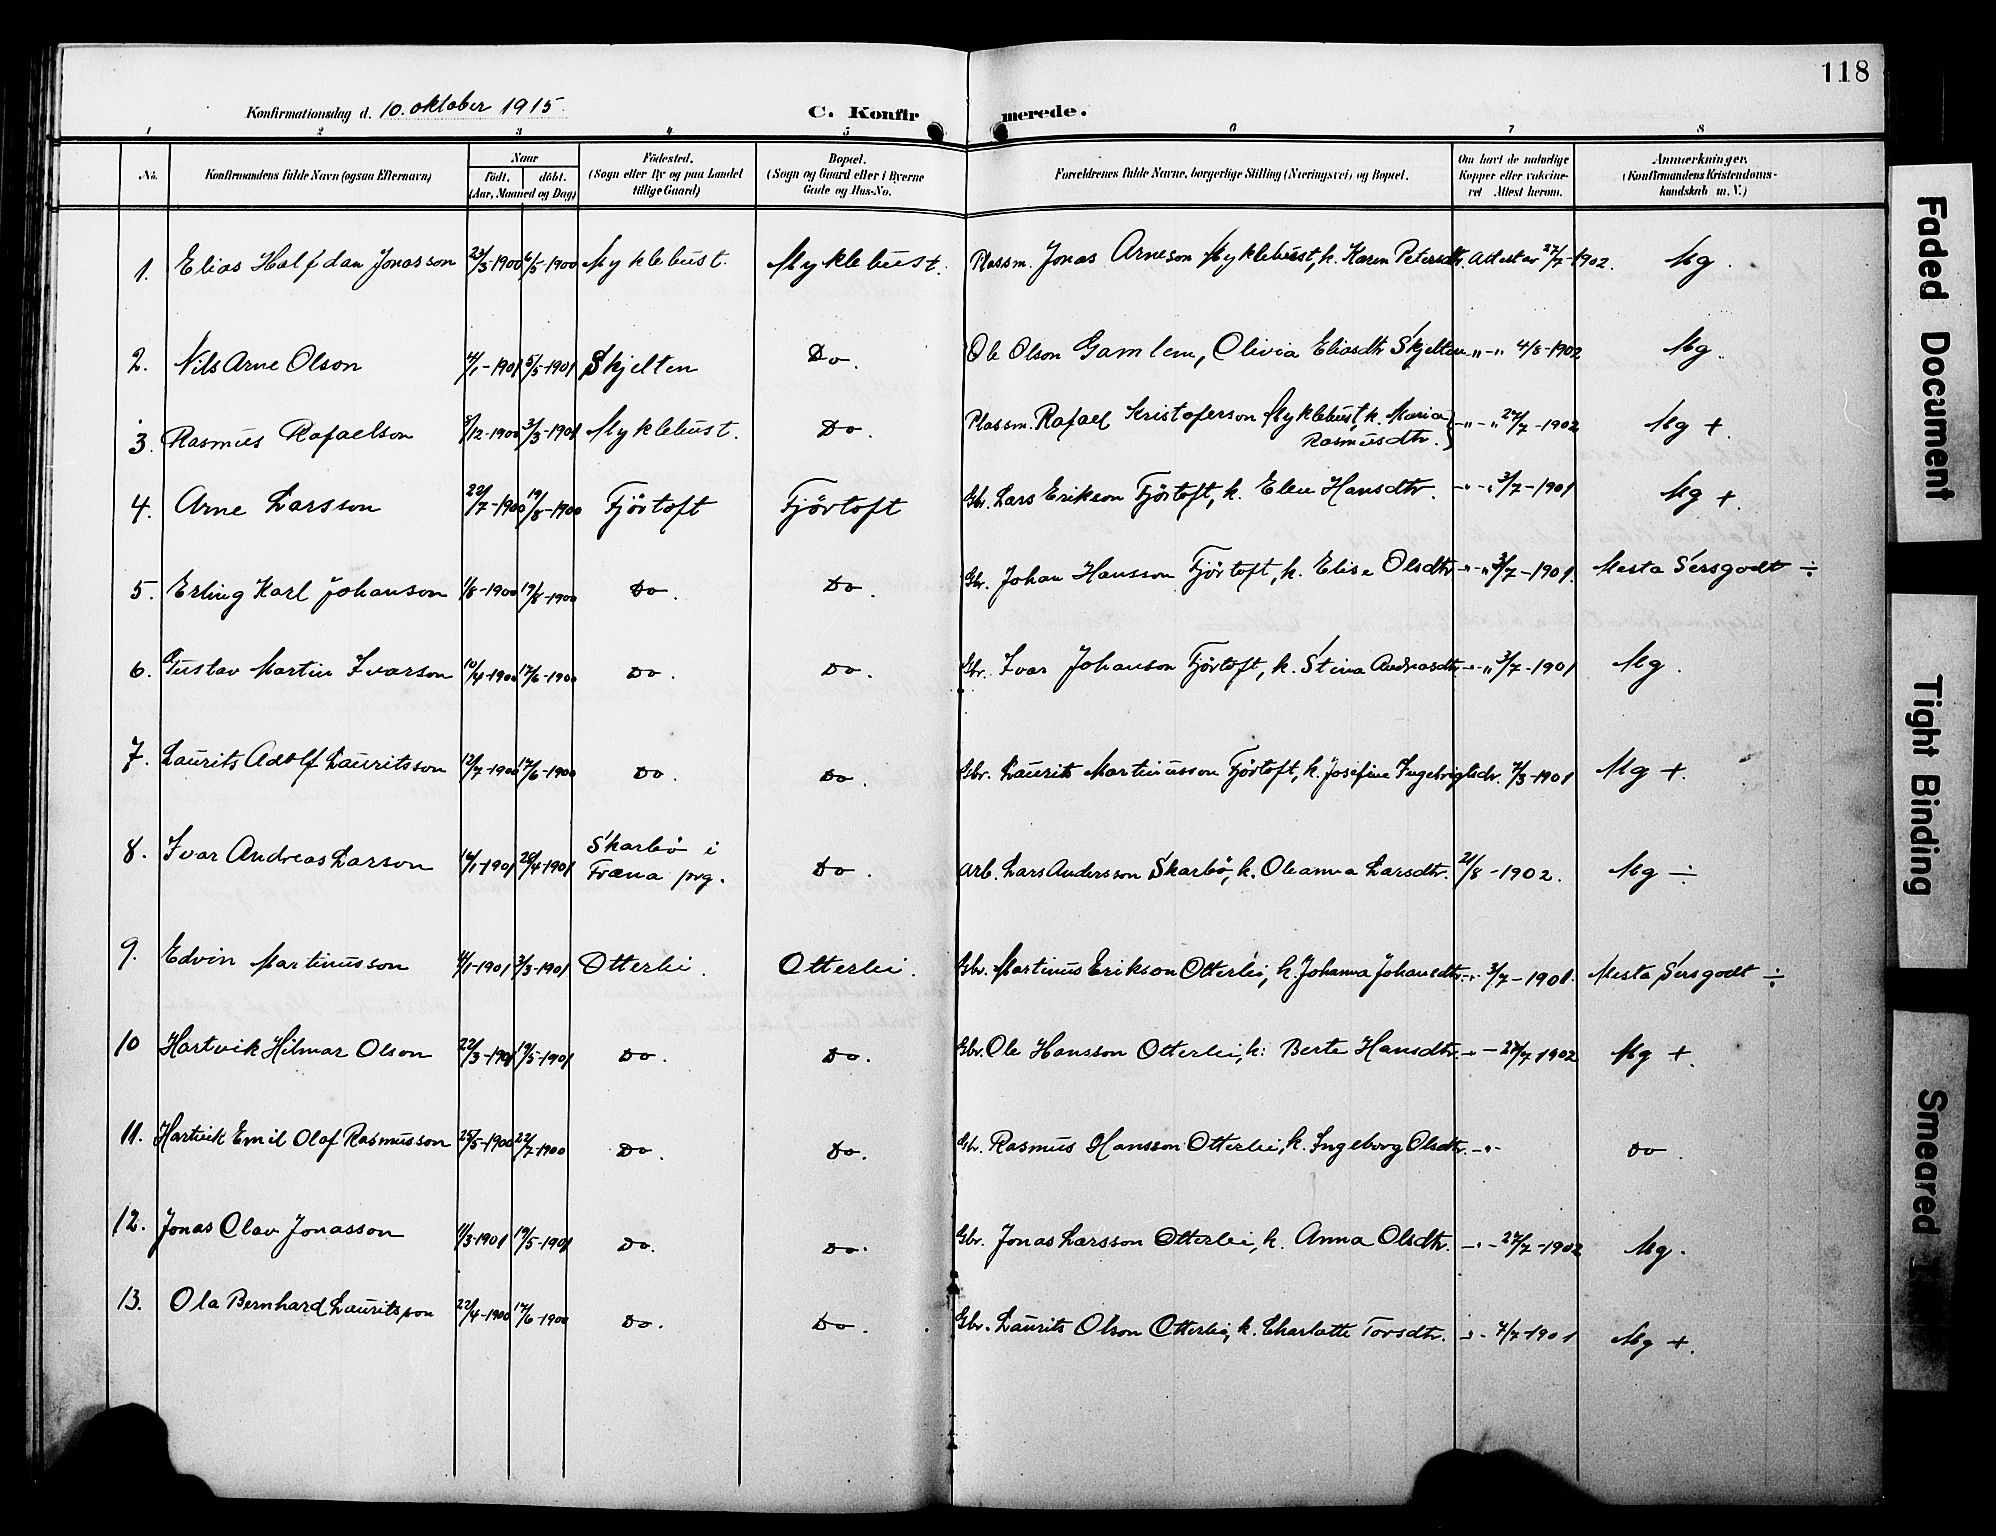 118
Konfirmationsdag d. 10. oktober 1915.
C. Konfirmerede.
1 2 3 4 5 6 7 8
No. Konfirmandens fulde Navn (ogsaa Efternavn) Naar Født. døbt. (Aar, Maaned og Dag) Fødested. (Sogn eller By og paa Landet tillige Gaard) Bopæl. (Sogn og Gaard eller i Byerne Gade og Hus-No. Forældrenes fulde Navne, borgerlige Stilling (Næringsvei) og Bopæl. Om havt de naturlige Kopper eller vakcineret Attest herom. Anmærkninger. (Konfirmandens Kristendomskundskab m. V.)
1. Elias Halfdan Jonasson 23/3-1900 6/5-1900 Myklebust. Myklebust. Plassm. Jonas Arneson Myklebust, k. Karen Petersdtr. Attest av 27/7-1902. Mg.
2. Nils Arne Olson 4/1-1901 5/5-1901 Skjelten Do. Ole Olson Gamlem, Olivia Eliasdtr Skjelten -„- 4/8-1902 Mg.
3. Rasmus Rafaelson 8/12-1900 3/3-1901 Myklebust. Do. Plassm. Rafael Kristoferson Myklebust, k. Maria Rasmusdtr. -„- 27/7-1902 Mg +.
4. Arne Larsson 22/7-1900 19/8-1900 Fjörtoft Fjörtoft Gbr. Lars Erikson Fjörtoft, k. Elen Hansdtr. -„- 3/7-1901 Mg +.
5. Erling Karl Johanson 1/8-1900 19/8-1900 Do. Do. Gbr. Johan Hansson Fjörtoft, k. Elise Olsdtr -„- 3/7-1901. Mesta Sersgodt ÷
6. Gustav Martin Ivarson 10/4-1900 17/6-1900 Do. Do. Gbr. Ivar Johanson Fjörtoft, k. Stina Andreasdtr -„- 3/7-1901 Mg.
7. Laurits Adolf Lauritsson 12/7-1900 17/6-1900 Do. Do. Gbr. Laurits Martinusson Fjörtoft, k. Josefine Ingebrigtsdr. 7/3-1901 Mg +.
8. Ivar Andreas Larson 14/1-1901 28/4-1901 Skarbö i Fræna prg. Do. Arb. Lars Andersson Skarbö, k. Oleanna Larsdtr. 21/8-1902. Mg ÷
9. Edvin Martinusson 4/1-1901 3/3-1901 Otterlei. Otterlei. Gbr. Martinus Erikson Otterlei, k. Johanna Johansdtr. -„- 3/7-1901. Mesta Sersgodt ÷
10 Hartvik Hilmar Olson 22/3-1901 19/5-1901 Do. Do. Gbr. Ole Hansson Otterlei, k. Berte Hansdtr. -„- 27/7 1902 Mg +.
11. Hartvik Emil Olaf Rasmusson 25/5-1900 22/7-1900 Do. Do. Gbr. Rasmus Hansson Otterlei, k. Ingeborg Olsdtr. -„- Do.
12. Jonas Olav Jonasson 11/3-1901 19/5-1901 Do. Do. Gbr. Jonas Larsson Otterlei, k. Anna Olsdtr. -„- 27/7-1902 Mg.
13. Ola Bernhard Lauritsson 22/4-1900 17/6-1900 Do. Do. Gbr. Laurits Olson Otterlei, k. Charlotte Torsdtr. -„- 7/7-1901 Mg +.
Faded Document
Tight Binding
Smeared